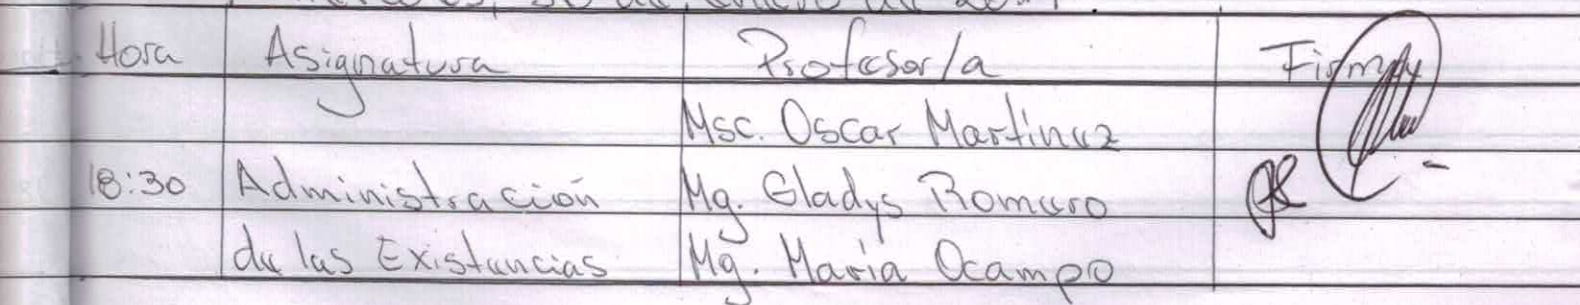 Hora Asignatura Profesor/a Firma
Msc. Oscar Martinez
18:30 Administración Mg. Gladys Romero
de las Existencias Mg. Maria Ocampo